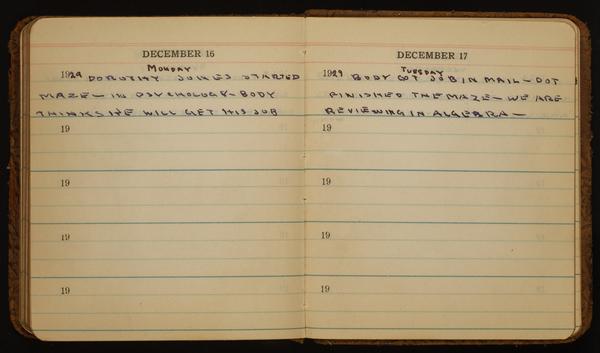 DECEMBER 16
MONDAY
1929 DOROTHY JONES STARTED
MAZE - IN PSYCHOLOGY - BODY
THINKS HE WILL GET HIS JOB
19
19
19
19
DECEMBER 17
TUESDAY
1929 BODY GOT JOB IN MAIL - DOT
FINISHED THE MAZE - WE ARE
REVIEWING IN ALGEBRA -
19
19
19
19